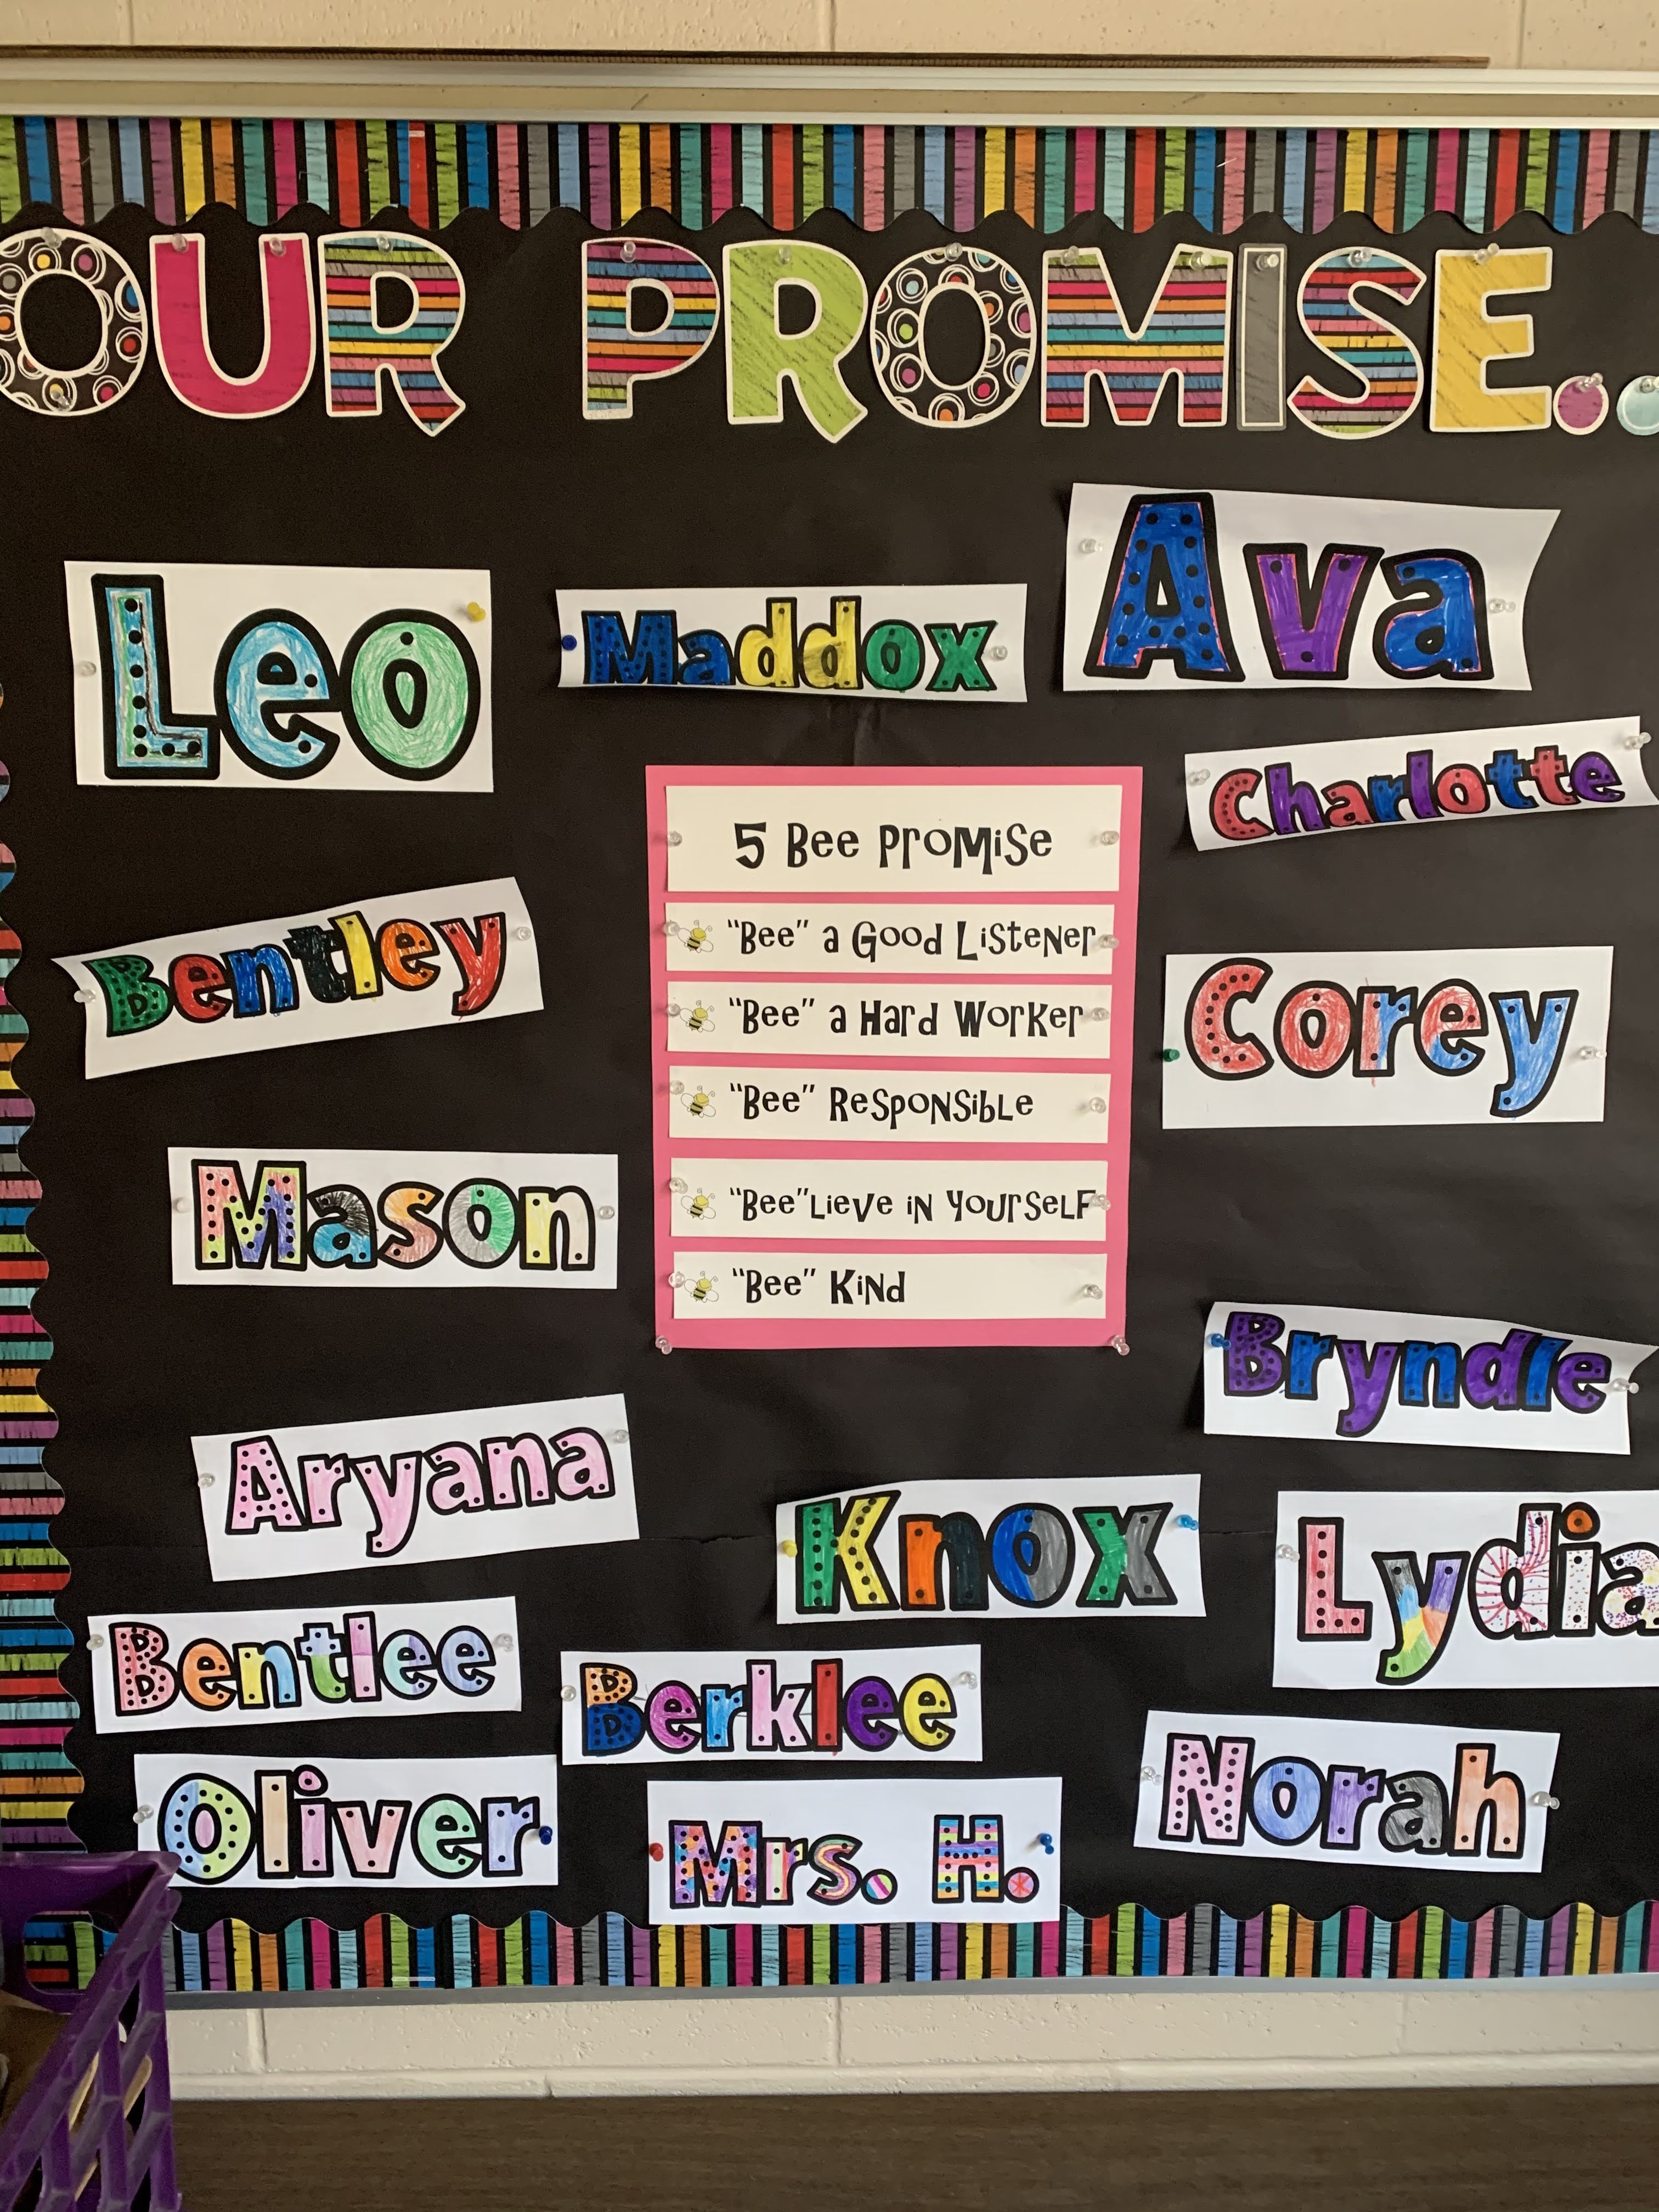 OUR PROMISE..
Leo
Maddox
Ava
Charlotte
5 Bee Promise
"Bee" a Good Listener
"Bee" a Hard Worker
"Bee" Responsible
"Bee"Lieve in Yourself
"Bee" Kind
Bentley
Corey
Mason
Bryndle
Aryana
Knox
Lydia
Bentlee
Berklee
Norah
Oliver
Mrs. H.